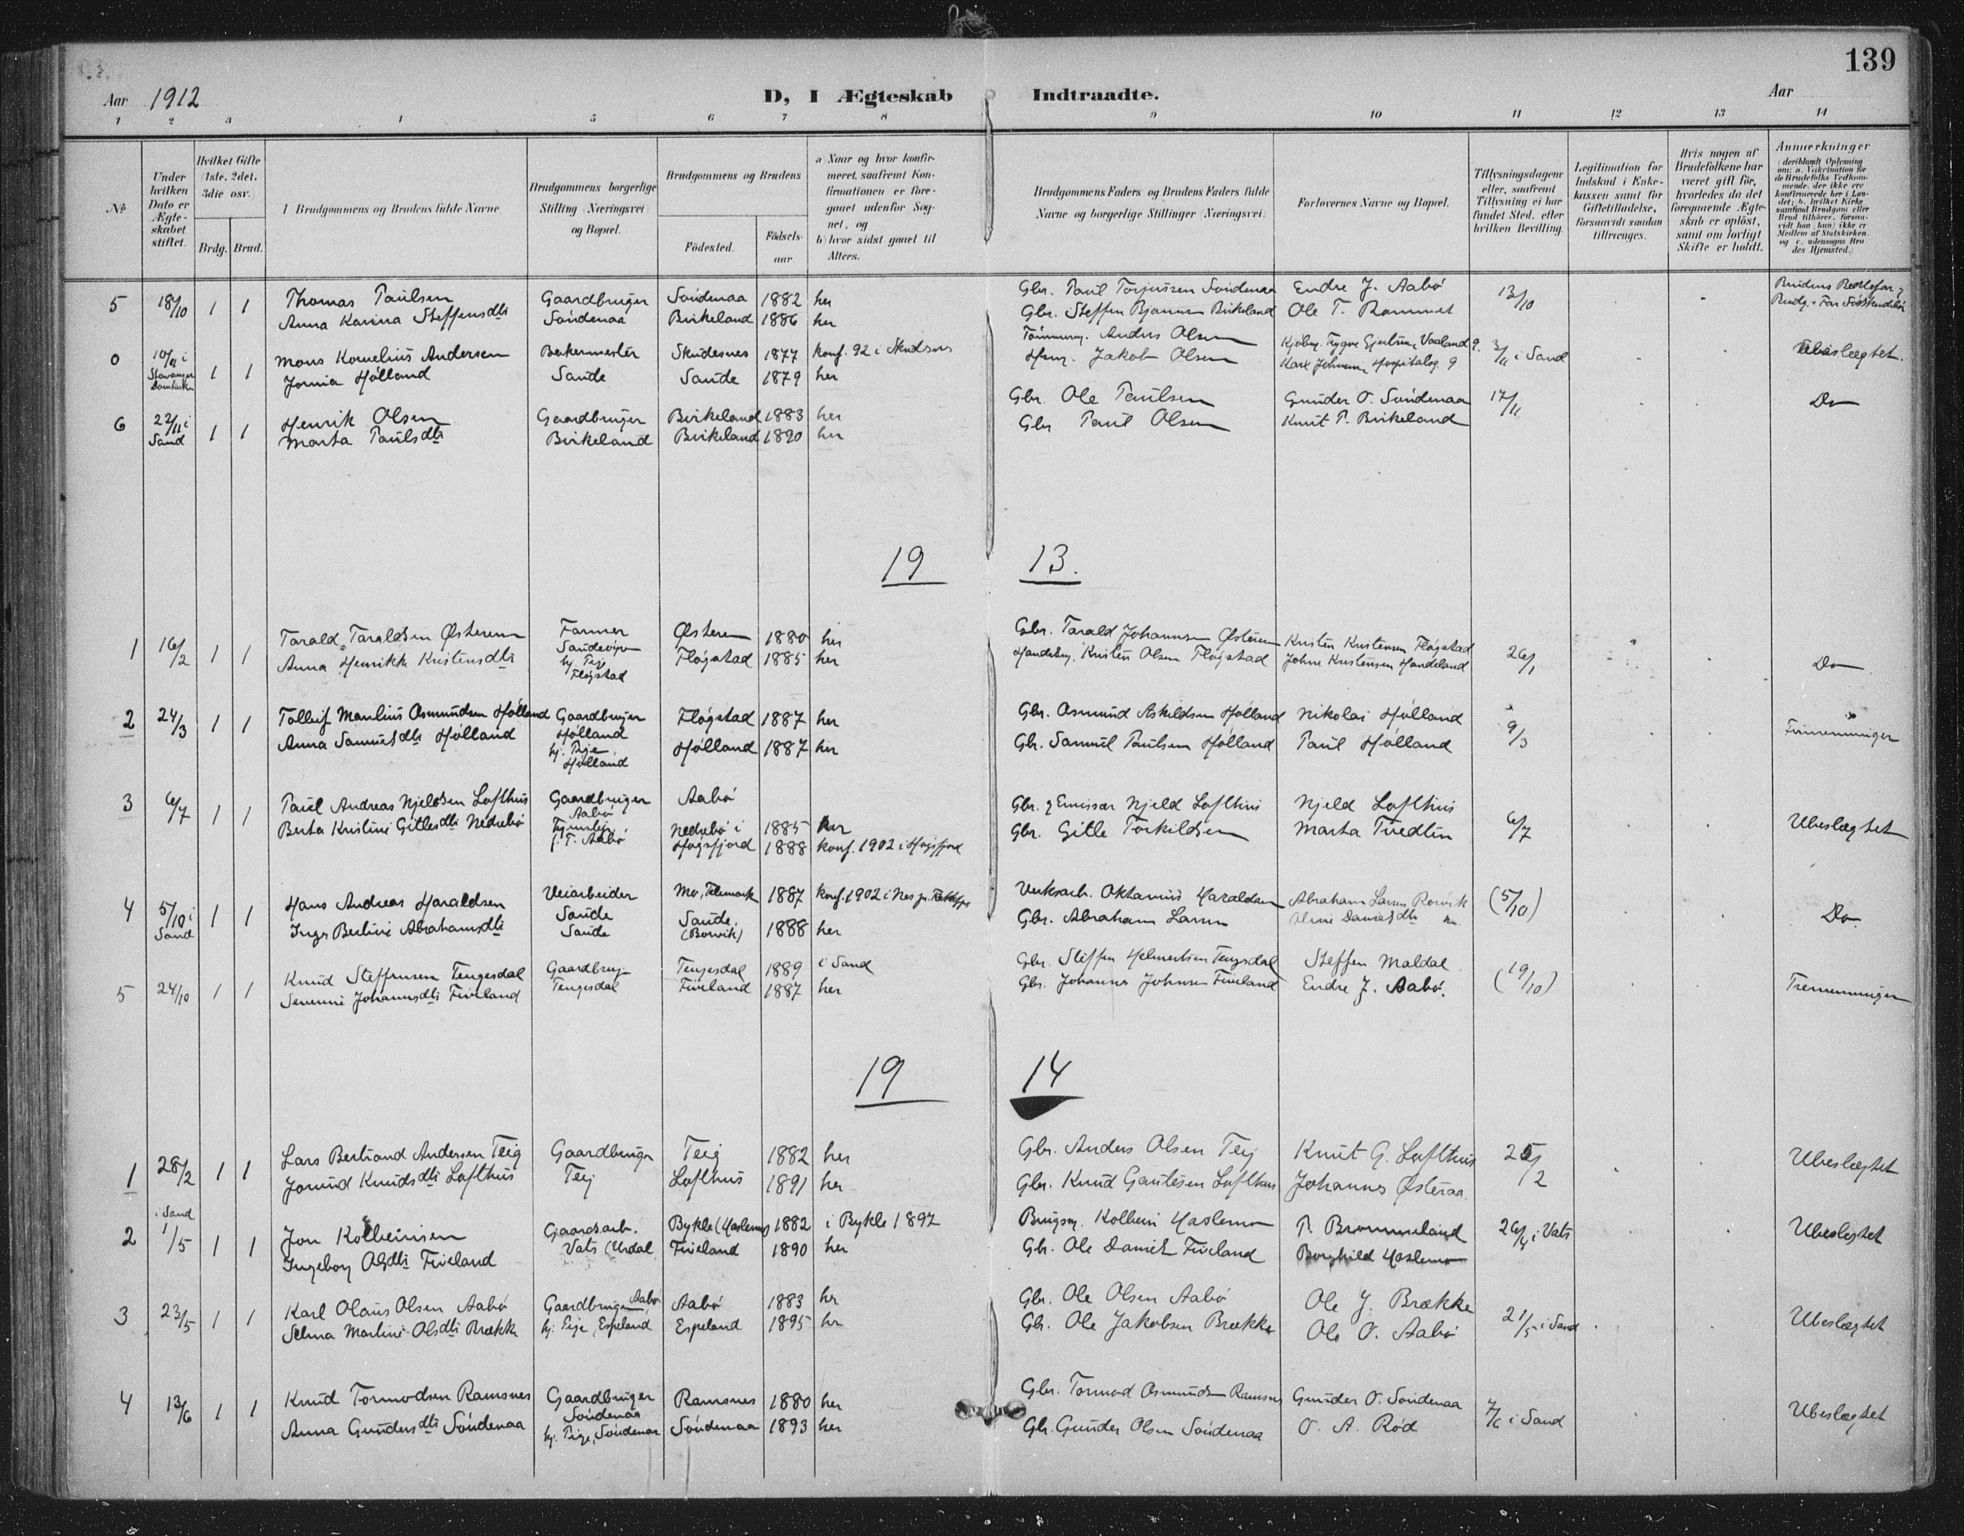 139
Aar 1912 D, I Ægteskab Indtraadte. Aar
1 2 3 4 5 6 7 8 9 10 11 12 13 14
No
Under hvilken Dato er Ægteskabet stiftet.
Hvilket Gifte (1ste, 2det, 3die osv.)
Brdg. Brud.
Brudgommens og Brudens fulde Navne
Brudgommens borgerlige Stilling (Næringsvei) og Bopæl.
Brudgommens og Brudens
Fødested. Fødselsaar.
a) Naar og hvor konfirmeret, saafremt Konfirmationen er foregaaet udenfor Sognet, og
b) hvor sidst gaaet til Alters.
Brudgommens Faders og Brudens Faders fulde Navne og borgerlige Stillinger (Næringsvei)
Forlovernes Navne og Bopæl.
Tillysningsdagene eller, saafremt Tillysning ei har fundet Sted, efter hvilken Bevilling.
Legitimation for Indskud i Enkekassen samt for Giftetilladelse, forsaavidt saadan tiltrænges.
Hvis nogen af Brudefolkene har været gift før, hvorledes da det foregaaende Ægteskab er opløst, samt om lovligt Skifte er holdt.
Anmerkninger
5 18/10 1 1 Thomas Paulsen Gaardbruger Søndenaa 1882 her Gbr. Paul Torjusen Søndenaa Endre J. Aabø 13/10
Anna Karina Steffensdtr Søndenaa Birkeland 1886 her Gbr. Steffen Bjannes Birkeland Ole T.
0 10/11 i Stavanger Domkirke 1 1 Mons Kornelius Andersen Bakermester Skudesnes 1877 konf. 92 i Skudesnes Tømmerm. Anders Olsen 3/11 i Sand Ubeslægtet.
Jorina Hølland Sande Sande 1879 her Jakob Olsen
6 22/11 i Sand 1 1 Henrik Olsen Gaardbruger Birkeland 1883 her Gbr. Ole Paulsen Gunder O. Søndenaa 17/11 Do
Marta Paulsdtr Birkeland Birkeland 1890 her Gbr Paul Olsen Knut P. Birkeland
19 13.
1 16/2 1 1 Tarald Taraldsen Østerem Farmer Østerem 1880 her Gbr. Tarald Johannsen Østerem Kristen Kristensen Fløgstad 26/1 Do
Anna Henrikke Kristensdtr Fløgstad Fløgstad 1885 her Kristen Olsen Fløgstad Johne Kristensen Handeland
2 24/3 1 1 Tolleif Manlius Osmundsen Hølland Gaardbruger Fløgstad 1887 her Gbr. Osmund Askildsen Hølland Nikolai Hølland 9/3
Anna Samuelsdtr Hølland Hølland hj. Pige Hølland Hølland 1887 her Gbr. Samuel Paulsen Hølland Paul Hølland
3 6/7 1 1 Paul Andreas Njeldsen Lofthus Gaardbruger Aabø Aabø 1885 her Gbr. og Emissær Njeld Lofthus Njeld Lofthus 6/7 Ubeslægtet
Berta Kristine Gitlesdtr Nedrebø Aabø Nedrebø i Høgsfjord 1888 konf. 1902 i Høgsfjord Gbr. Gitle Torkildsen Marta Tvedten
4 5/10 i Sand 1 1 Hans Andreas Haraldsen Veiarbeider Mo, Telemark 1887 konf. 1902 i Nes Verksarb. Oktavius Haraldsen Abraham Larsen (5/10) Do.
Inger Berline Abrahamsdtr Sande Sande Sande, 1888 her Gbr. Abraham Larsen
5 24/10 1 1 Knud Steffensen Tengesdal Gaardbrug. Tengesdal 1889 i Sand Gbr. Steffen Helmertsen Tengesdal Steffen Maldal (19/10) Tremenninger
Severine Johannesdtr Fiveland Tengesdal Fiveland 1887 her Gbr. Johannes Johnsen Fiveland Endre J. Aabø.
19 14
1 28/2 1 1 Lars Bertrand Andersen Teig Gaardbruger Teig 1882 her Gbr. Anders Olsen Teig Knut G. Lofthus 25/2 Ubeslægtet
Jorund Knudsdtr Lofthus Teig Lofthus 1891 her Gbr. Knud Gautesen Lofthus Johannes Østeraa
2 i Sand 1/5 1 1 Jon Kolbeinsen Gaardsarb. Bykle (Haslemo) 1882 i Bykle 1897 Brugsm. Kolbein Haslemo P. Brommeland 26/4 i Vats Ubeslegtet
Ingeborg Olsdtr Fiveland Vats (Urdal Fiveland 1890 her Gbr. Ole Daniel Fiveland Borghild Haslemo
3 23/5 1 1 Karl Olaus Olsen Aabø Gaardbruger Aabø Aabø 1883 her Gbr. Ole Olsen Aabø Ole J. Brække 21/5 i Sand Ubeslægtet
Selma Martine Olsdtr Brække hj. Pige, Espeland Espeland 1895 her Gbr. Ole Jakobsen Brække Ole O. Aabø
4 13/6 1 1 Knud Tormodsen Ramsnes Gaardbruger Søndenaa Ramsnes 1880 her Gbr. Tormod Osmundsen Ramsnes Gunder O. Søndenaa 7/6 i Sand Ubeslægtet
Anna Gundersdtr Søndenaa hj. Pige, Søndenaa Søndenaa 1893 her Gbr. Gunder Olsen Søndenaa O. A. Rød